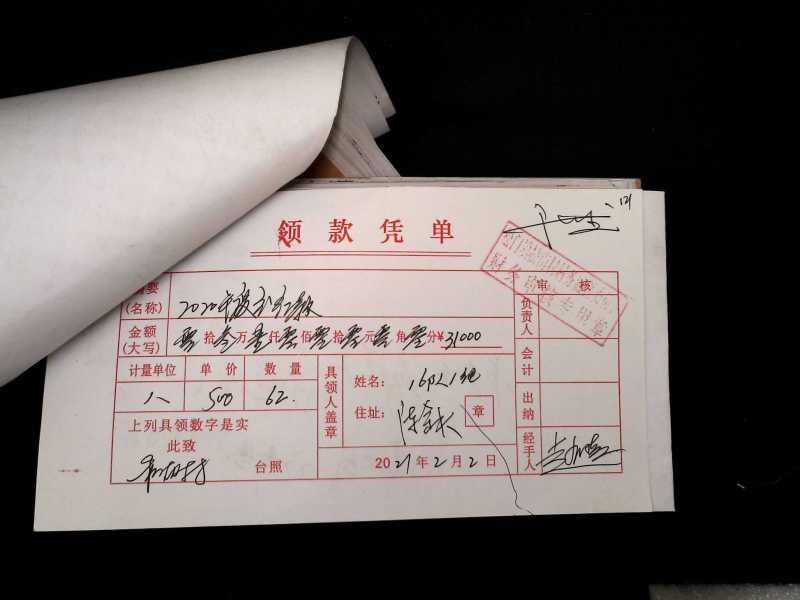 领款凭单
审核
要
(名称) 2020年度分红款
金额 (大写) 零拾叁万壹仟零佰零拾零元零角零分¥31000
计量单位 单价 数量
人 500 62.
具领人盖章
姓名: 16队1组
住址: 章
上列具领数字是实
此致
台照
2021年2月2日
负责人
会计
出纳
经手人
财务审核专用章